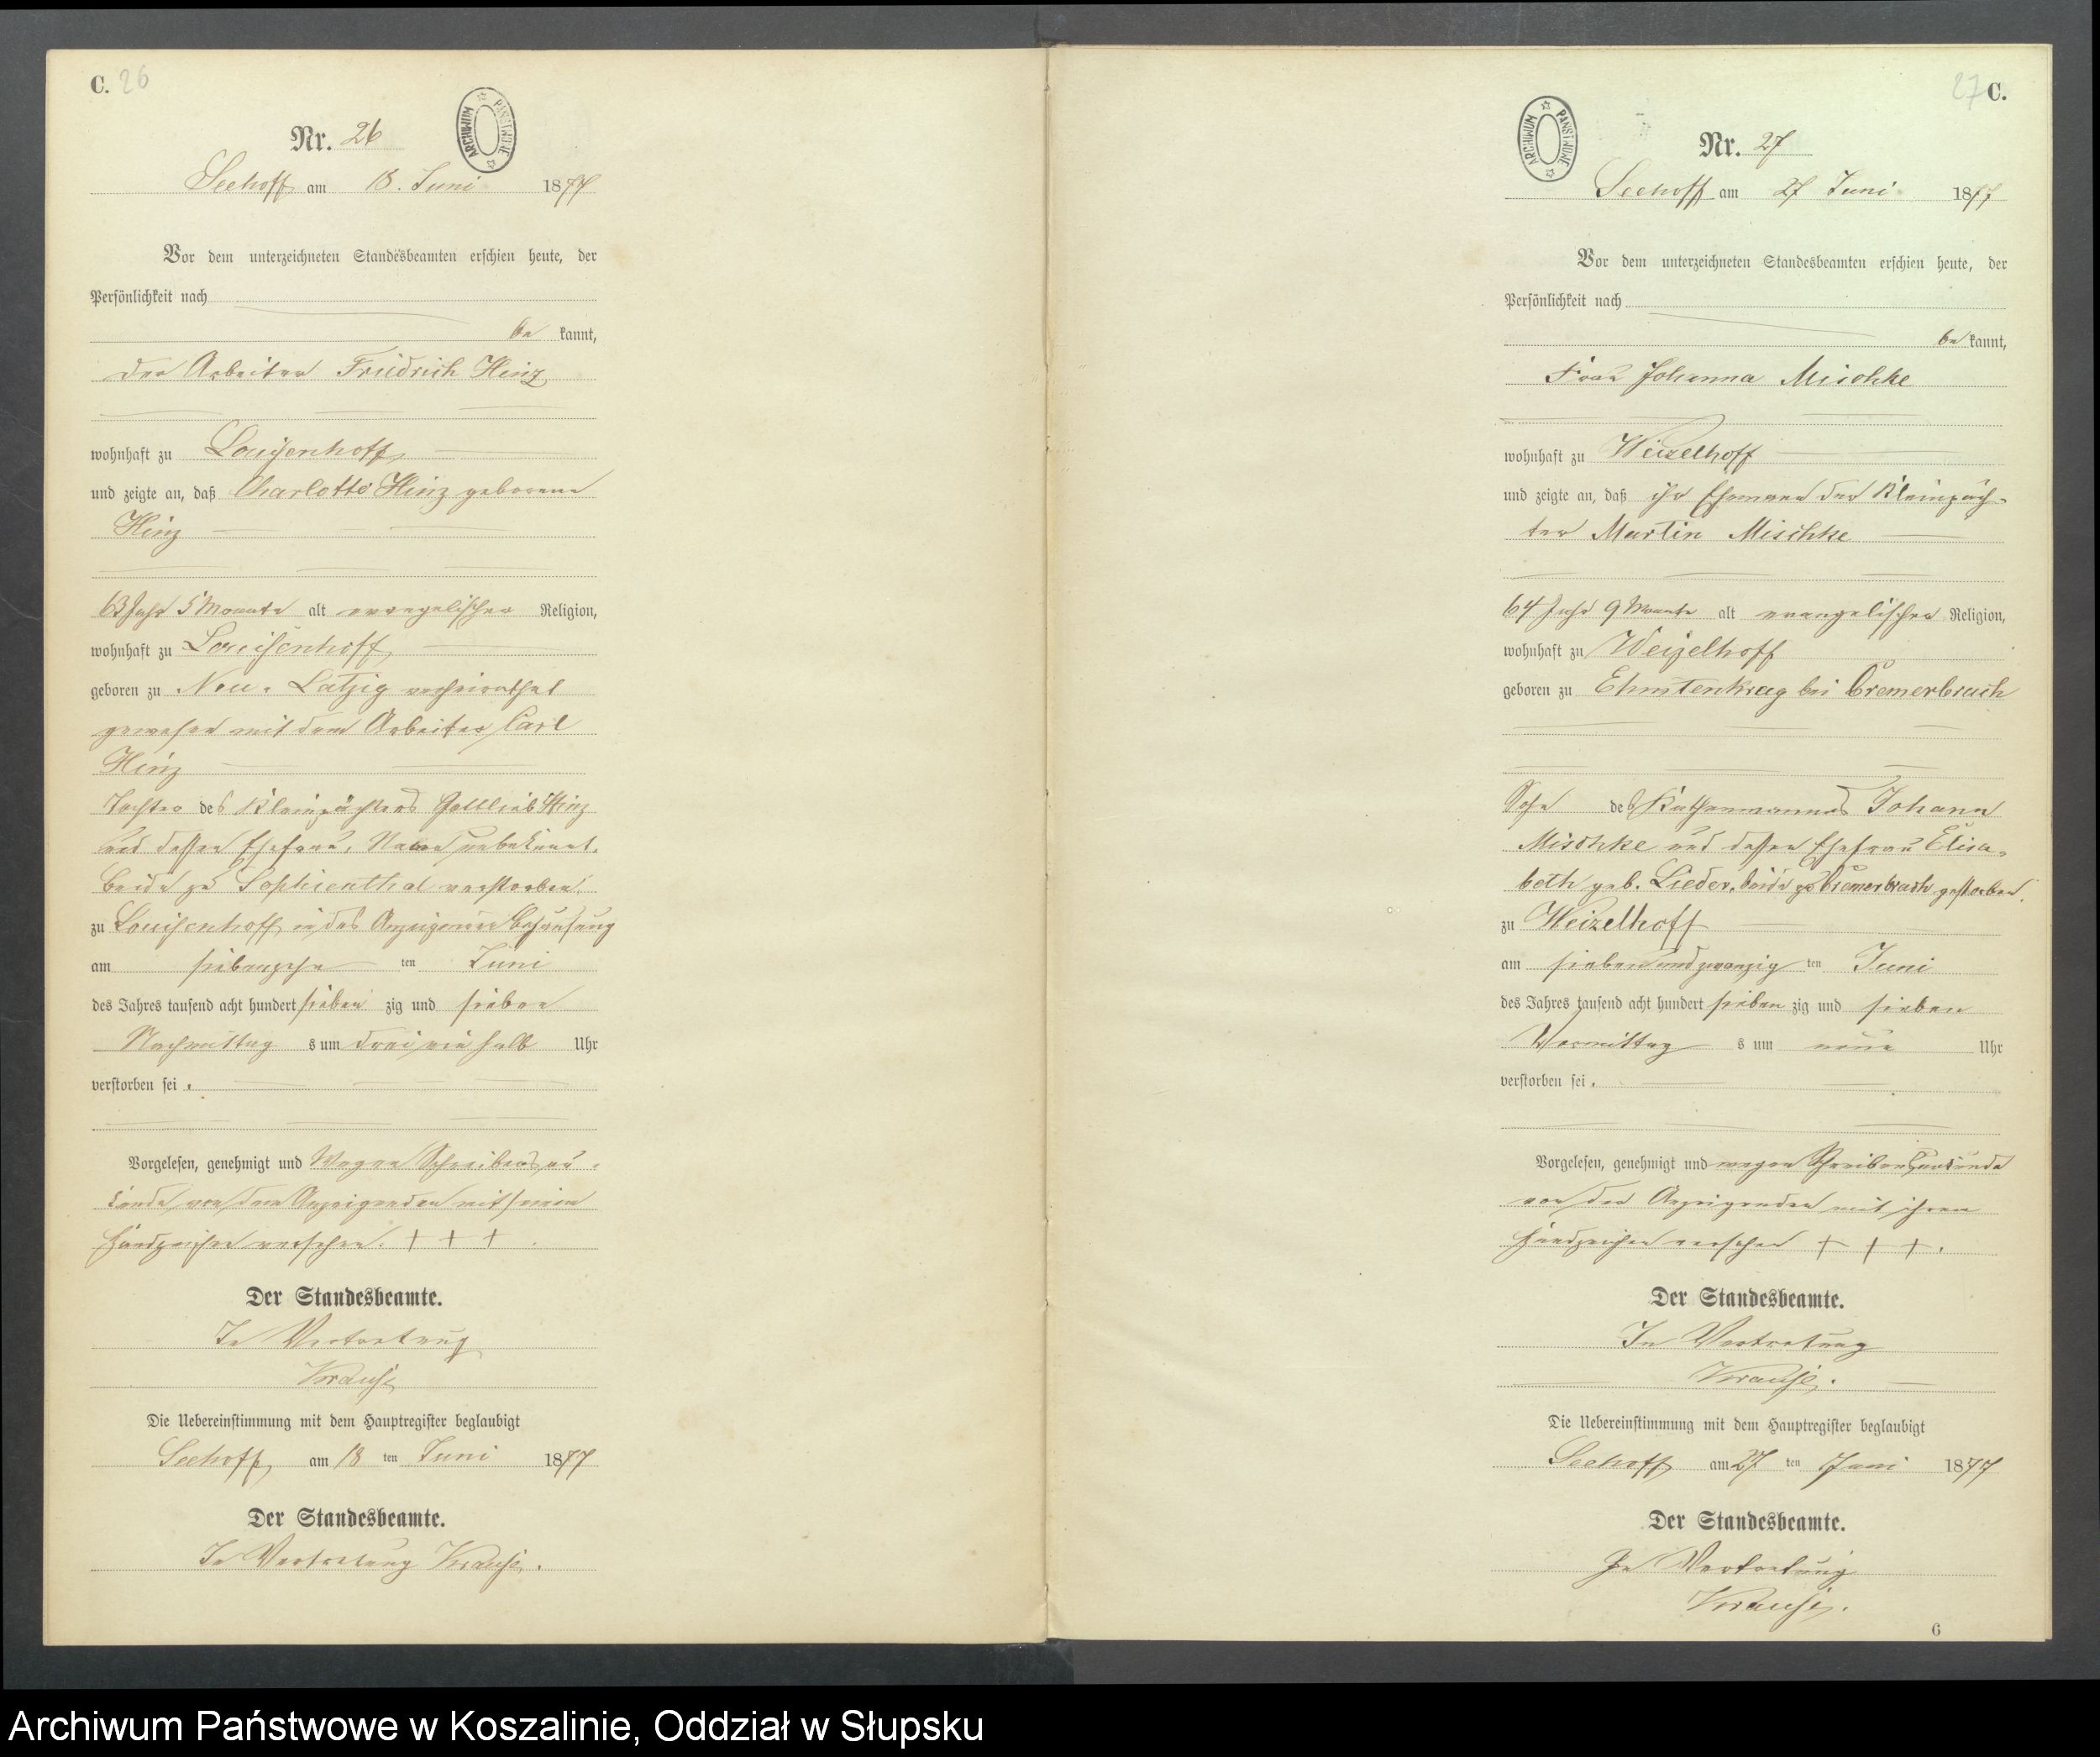 C. 26
ARCHIWUM PAŃSTWOWE
Nr. 26
Seehoff am 18. Juni 1877
Vor dem unterzeichneten Standesbeamten erschien heute, der
Persönlichkeit nach
be kannt,
der Arbeiter Friedrich Hinz
wohnhaft zu Louisenhoff
und zeigte an, daß Charlotte Hinz geborene
Hinz
63 Jahr 5 Monate alt evangelischer Religion,
wohnhaft zu Louisenhoff
geboren zu Neu-Latzig verheirathet
gewesen mit dem Arbeiter Carl
Hinz
Tochter des Kleinpächters Gottlieb Hinz
und dessen Ehefrau, Name unbekannt.
beide zu Sophienthal verstorben.
zu Louisenhoff in des Anzeigenden Behausung
am siebenzehn ten Juni
des Jahres tausend acht hundert sieben zig und sieben
Nachmittag s um drei ein halb Uhr
verstorben sei.
Vorgelesen, genehmigt und Wegen Schreibensun-
kunde von dem Anzeigenden mit seinem
Handzeichen versehen. + + +
Der Standesbeamte.
In Vertretung
Krause
Die Uebereinstimmung mit dem Hauptregister beglaubigt
Seehoff, am 18 ten Juni 1877
Der Standesbeamte.
In Vertretung Krause.
27 C.
ARCHIWUM PAŃSTWOWE
Nr. 27
Seehoff am 27 Juni 1877
Vor dem unterzeichneten Standesbeamten erschien heute, der
Persönlichkeit nach
be kannt,
Frau Johanna Mischke
wohnhaft zu Weizelhoff
und zeigte an, daß ihr Ehemann der Kleinpäch-
ter Martin Mischke
64 Jahr 9 Monate alt evangelischer Religion,
wohnhaft zu Weizelhoff
geboren zu bei Cremerbruch
Sohn des Kathenmannes Johann
Mischke und dessen Ehefrau Elisa-
beth geb. Lieder, beide zu Cremerbruch gestorben.
zu Weizelhoff
am siebenundzwanzig ten Juni
des Jahres tausend acht hundert sieben zig und sieben
Vormittag s um neun Uhr
verstorben sei.
Vorgelesen, genehmigt und wegen Schreibensunkunde
von der Anzeigenden mit ihrem
Handzeichen versehen + + +.
Der Standesbeamte.
In Vertretung
Krause.
Die Uebereinstimmung mit dem Hauptregister beglaubigt
Seehoff am 27 ten Juni 1877
Der Standesbeamte.
In Vertretung
Krause.
6
Archiwum Państwowe w Koszalinie, Oddział w Słupsku